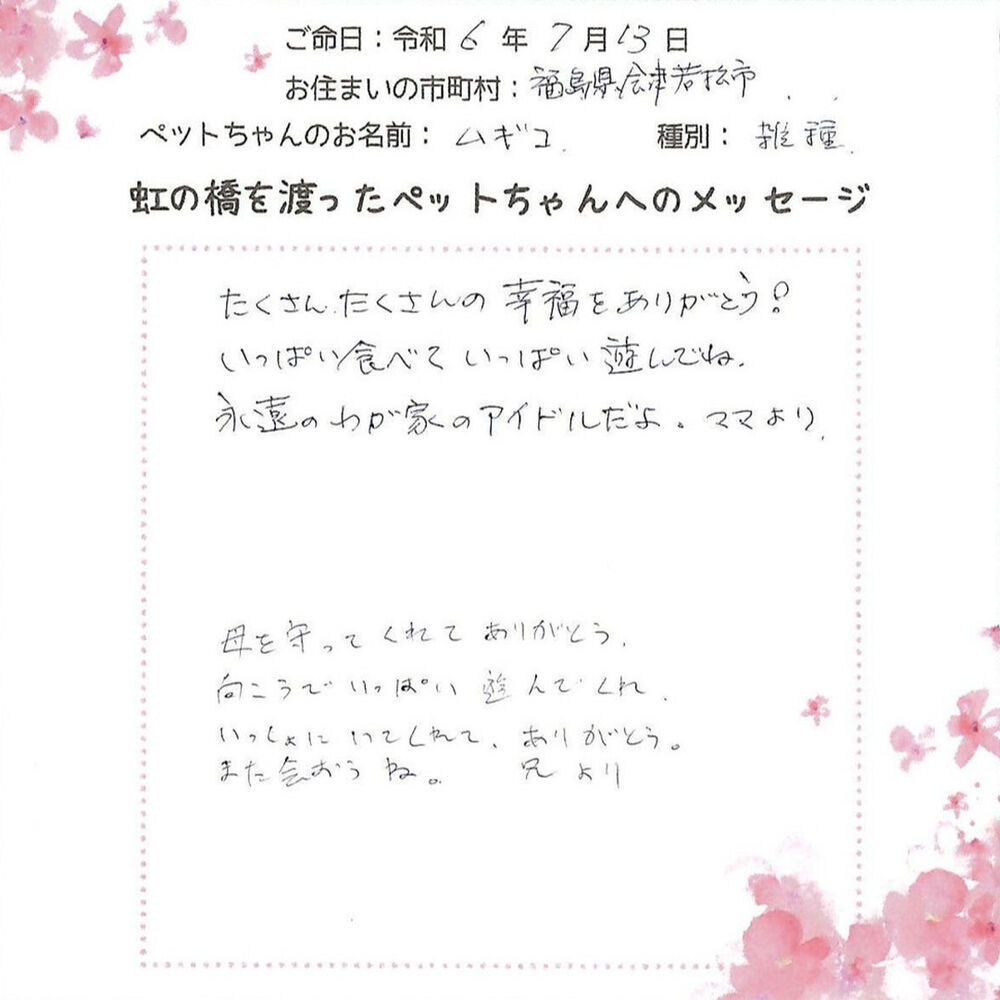 ご命日：令和 6 年 7 月 13 日
お住まいの市町村：福島県会津若松市
ペットちゃんのお名前： ムギコ 種別： 雑種
虹の橋を渡ったペットちゃんへのメッセージ
たくさん、たくさんの幸福をありがとう！
いっぱい食べて いっぱい遊んでね。
永遠のわが家のアイドルだよ。ママより
母を守ってくれてありがとう。
向こうでいっぱい遊んでくれ。
いっしょにいてくれて、ありがとう。
また会おうね。 兄より